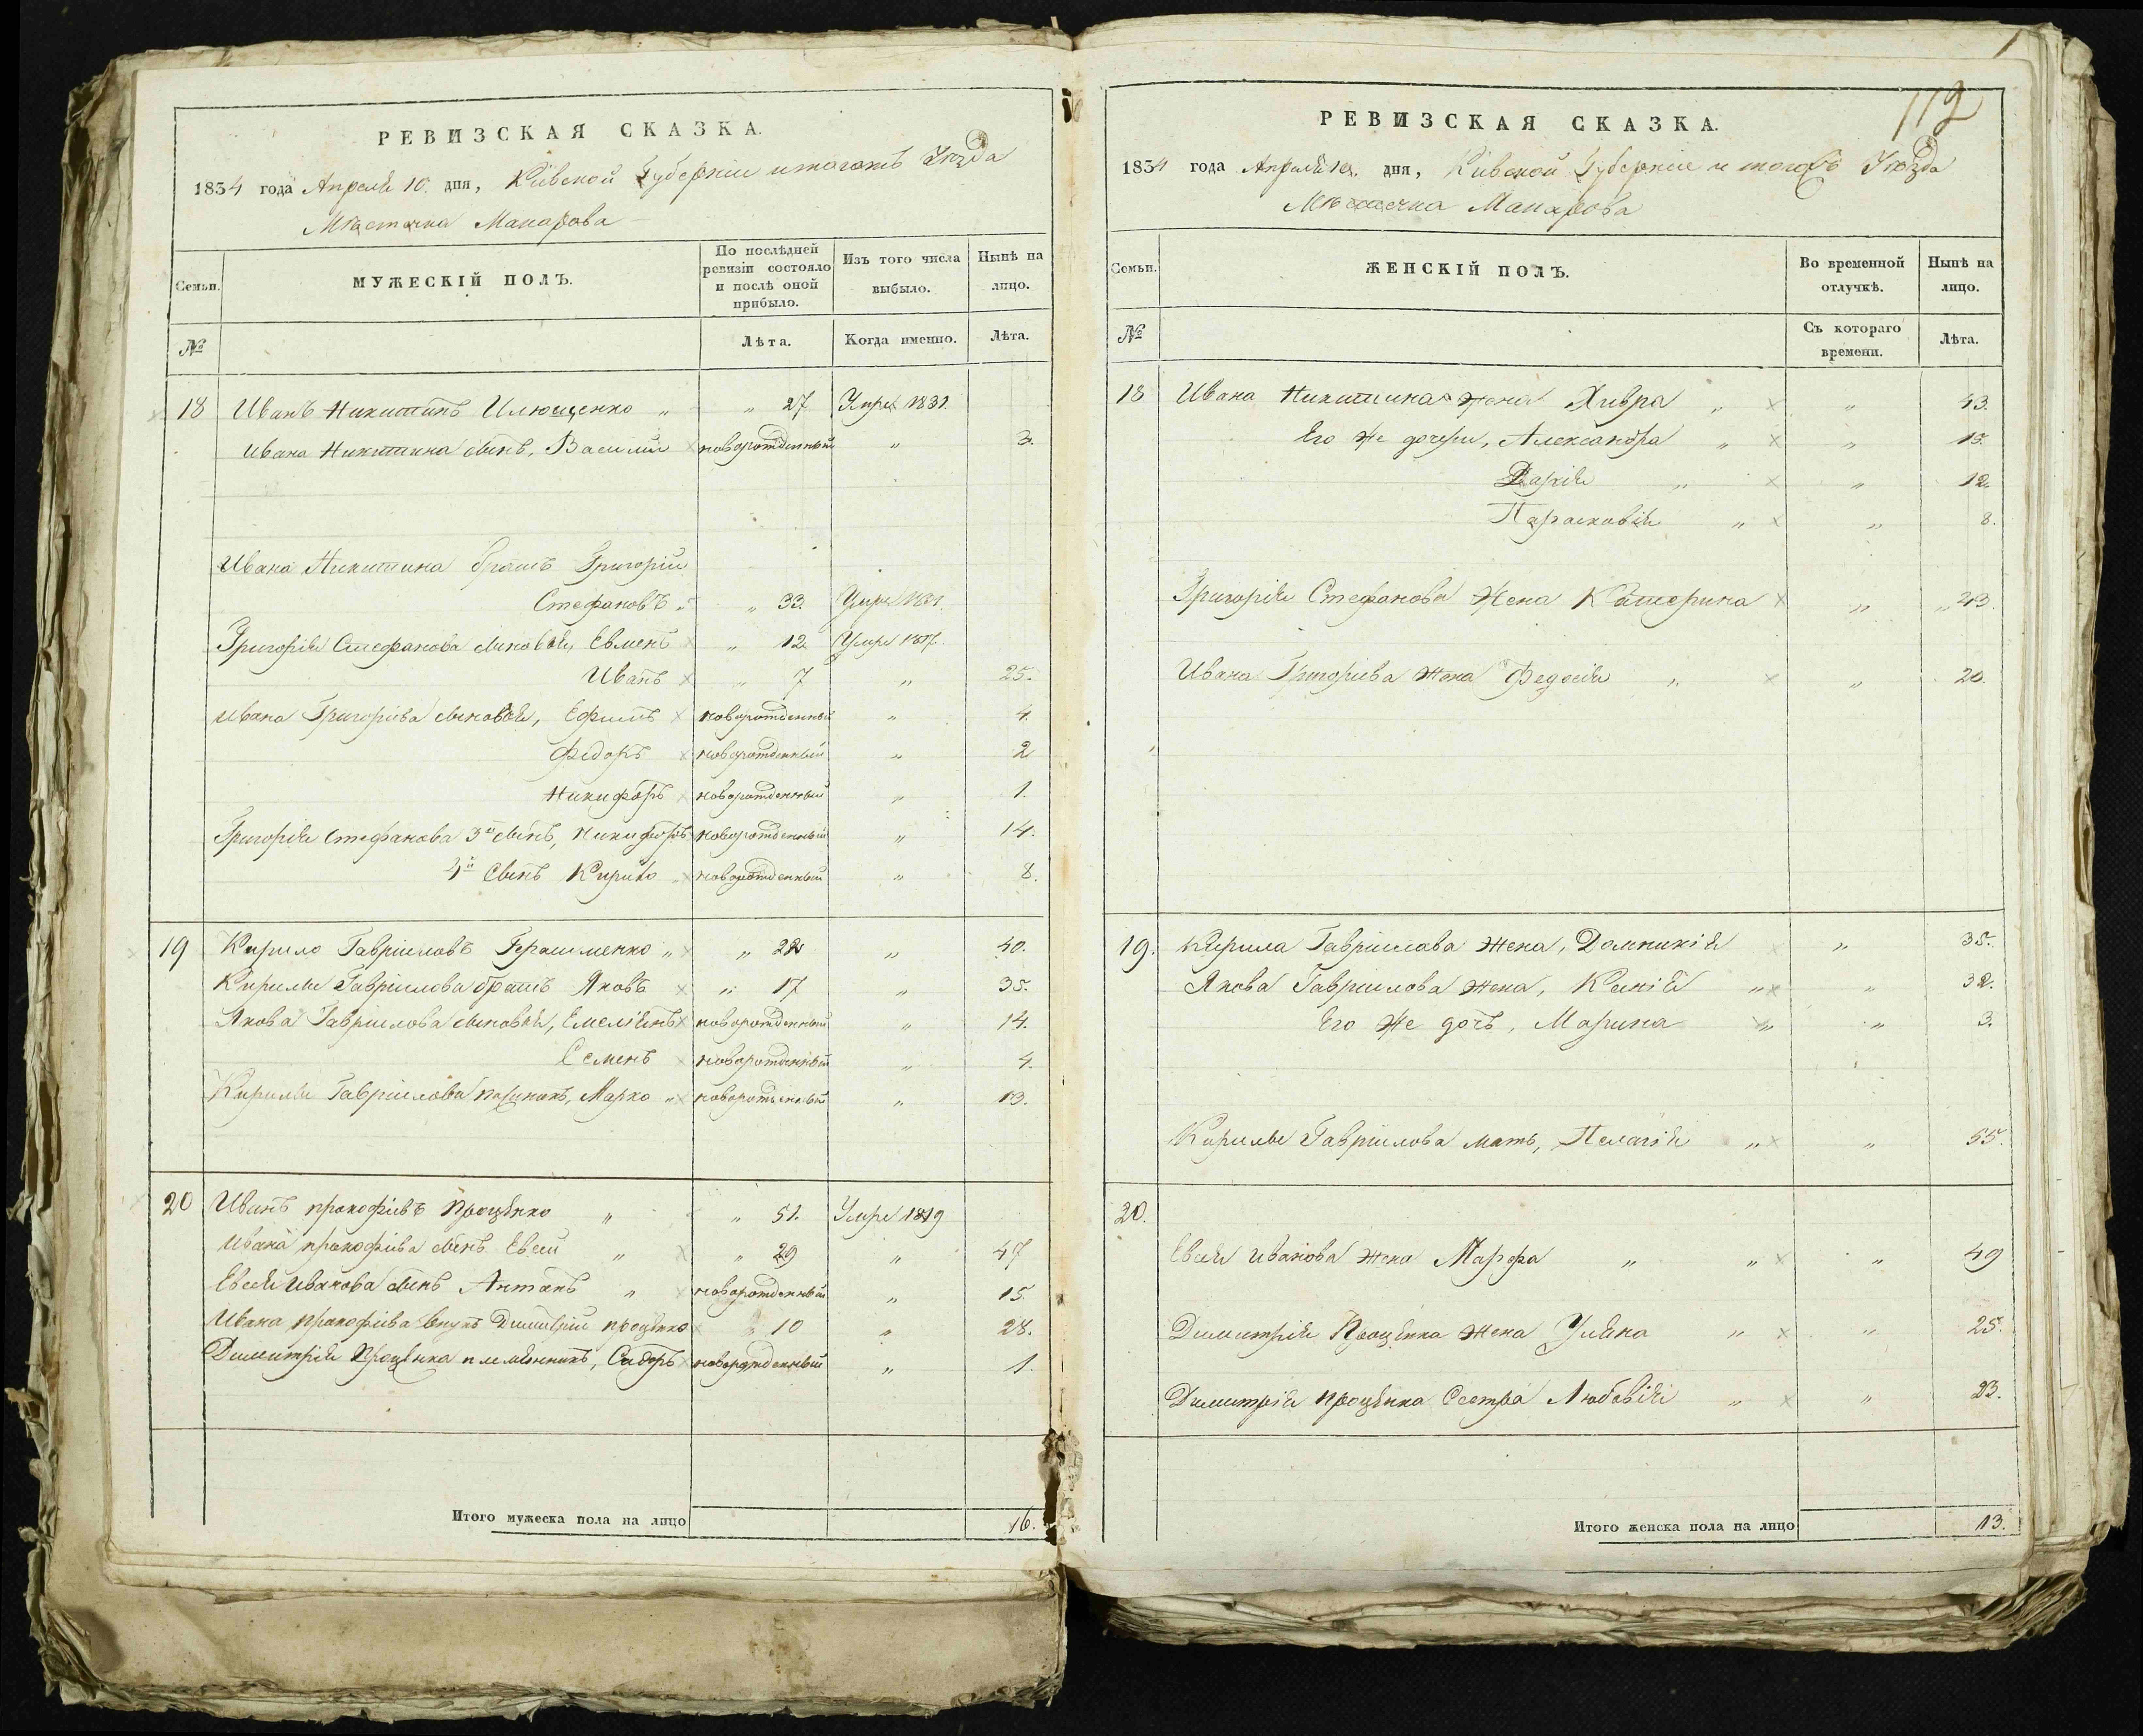 РЕВИЗСКАЯ СКАЗКА.
1834 года Апреля 10. дня, Кіевской Губерніи и тогожъ Уѣзда
Мѣстечка Макарова
Семьи.
МУЖЕСКІЙ ПОЛЪ.
По послѣдней ревизіи состояло и послѣ оной прибыло.
Изъ того числа выбыло.
Нынѣ на лицо.
№
Лѣта.
Когда именно.
Лѣта.
18 Иванъ Никитинъ Илющенко „ „ 27 Умре 1831.
Ивана Никитина сынъ, Василий новорожденный „ 3.
Ивана Никитина братъ Григорій
Стефановъ „ „ 33. Умре
Григорія Стефанова сыновья, Евмень „ 12 Умре
Иванъ „ 7 „ 25.
Ивана Григоріева сыновья, Ефимъ новорожденный „ 4.
Федоръ новорожденный „ 2
Никифоръ новорожденный „ 1.
Григорія Стефанова 3й сынъ, Никифоръ новорожденный „ 14.
4й Сынъ Кирило новорожденный „ 8.
19 Кирило Гавріиловъ Герасименко „ „ 22 „ 40.
Кирилы Гавріилова братъ Яковъ „ 17 „ 35.
Якова Гавріилова сыновья, Емеліянъ новорожденный „ 14.
Семенъ новорожденный „ 4.
Кирилы Гавріилова Марко „ новорожденный „ 13.
20 Иванъ прокофіевъ Проценко „ „ 51. Умре 1819
Ивана прокофіева сынъ Евсей „ „ 29 „ 47
Евсея Иванова сынъ Антонъ „ новорожденный „ 15.
Ивана прокофіева внукъ Димитрій проценко „ 10 „ 28.
Димитрія Проценка племянникъ, Сидоръ новорожденный „ 1.
Итого мужеска пола на лицо 16.
112
РЕВИЗСКАЯ СКАЗКА.
1834 года Апреля 10. дня, Кіевской Губерніи и тогожъ Уѣзда
Мѣстечка Макарова
Семьи.
ЖЕНСКІЙ ПОЛЪ.
Во временной отлучкѣ.
Нынѣ на лицо.
№
Съ котораго времени.
Лѣта.
18 Ивана Никитина жена Хивра „ „ 43.
Его же дочери, Александра „ „ 15.
Дарія „ „ 12.
Парасковія „ „ 8.
Григорія Стефанова Жена Катерина „ „ 43.
Ивана Григоріева жена Федосія „ „ 20.
19. Кирила Гавріилова жена, Домникія „ 35.
Якова Гавріилова жена, Ксенія „ „ 32.
Его же дочь, Марина „ „ 3.
Кирилы Гавріилова мать, Пелагія „ „ 55.
20.
Евсея Иванова жена Марфа „ „ „ 49
Димитрія Проценка жена Уляна „ „ 25.
Димитрія проценка Сестра Любовія „ „ 23.
Итого женска пола на лицо 13.